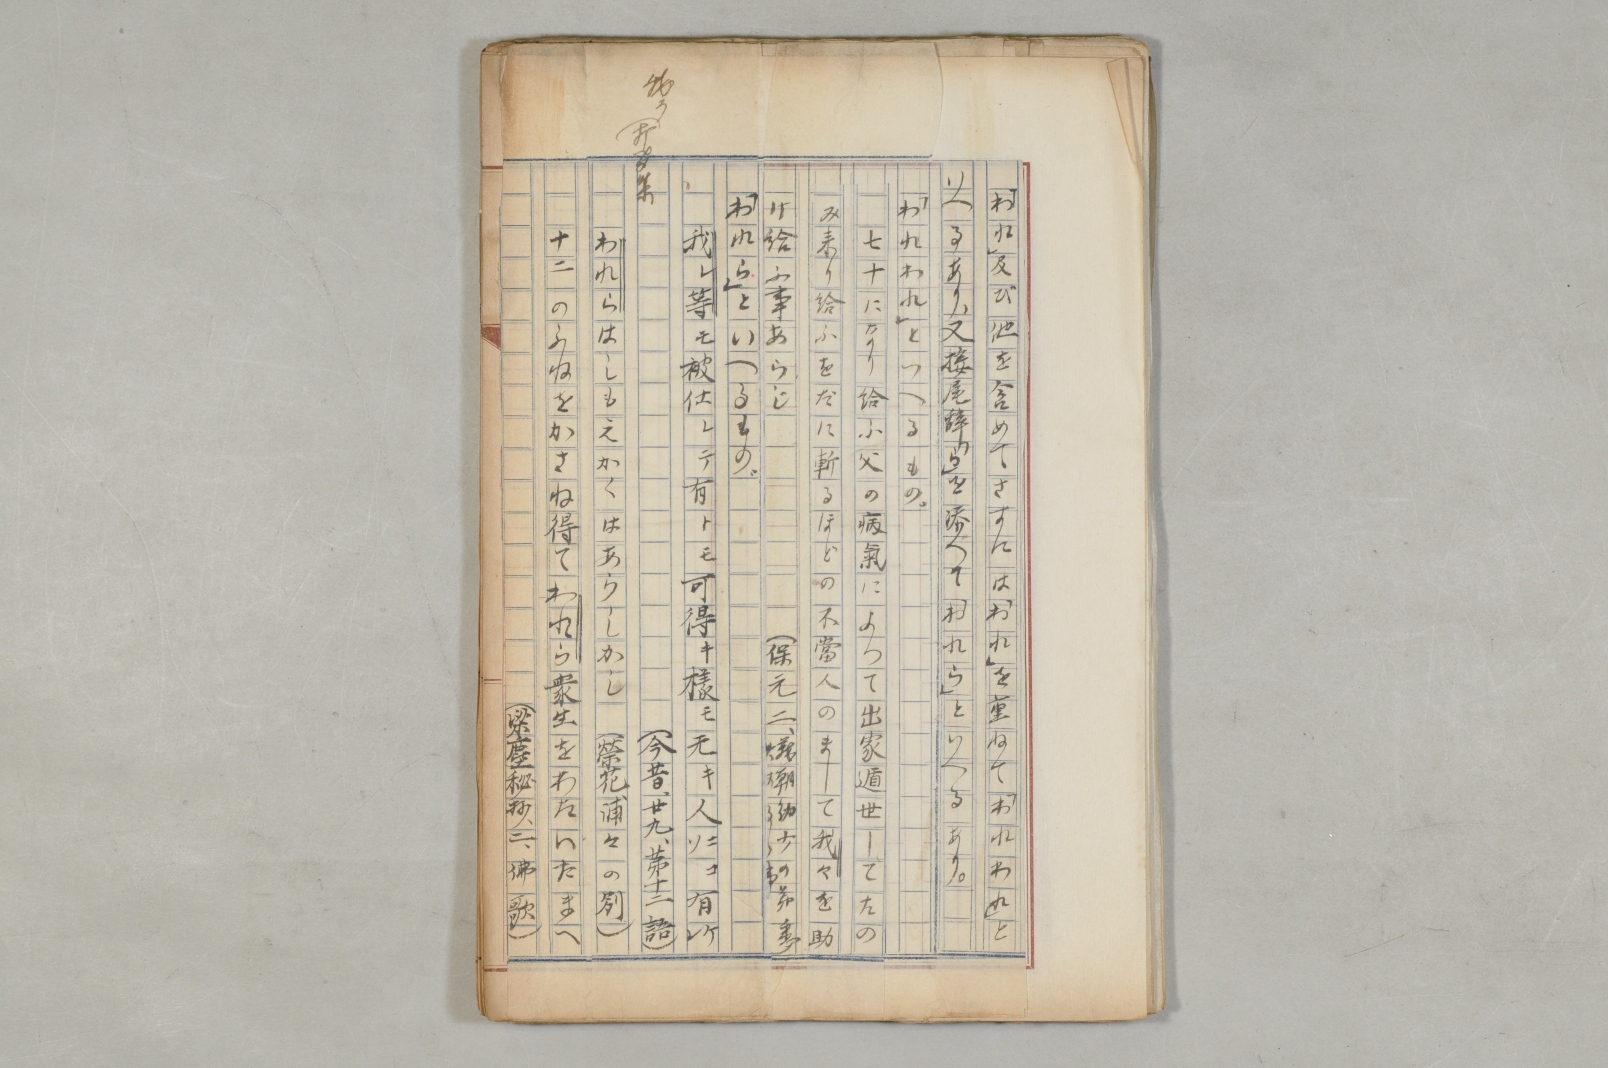 「われ」及び他を含めてさすには「われ」を重ねて「われわれ」と
いへるあり、又接尾辞「ら」を添へて「われら」といへるあり。
「われわれ」といへるもの。
七十になり給ふ父の病氣によつて出家遁世してたの
み來り給ふをだに斬るほどの不當人のまして我々を助
け給ふ事あらじ
(保元二、義朝幼少の弟
「われら」といへるもの。
我レ等モ被仕レテ有トモ可得キ樣モ无キ人ソニコ有レケ
(今昔、廿九、第十二語)
われらはしもえかくはあらじかし
(榮花浦々の別)
十二のふねをかさね得てわれら衆生をわたいたまへ
(梁塵秘抄、二、佛歌)